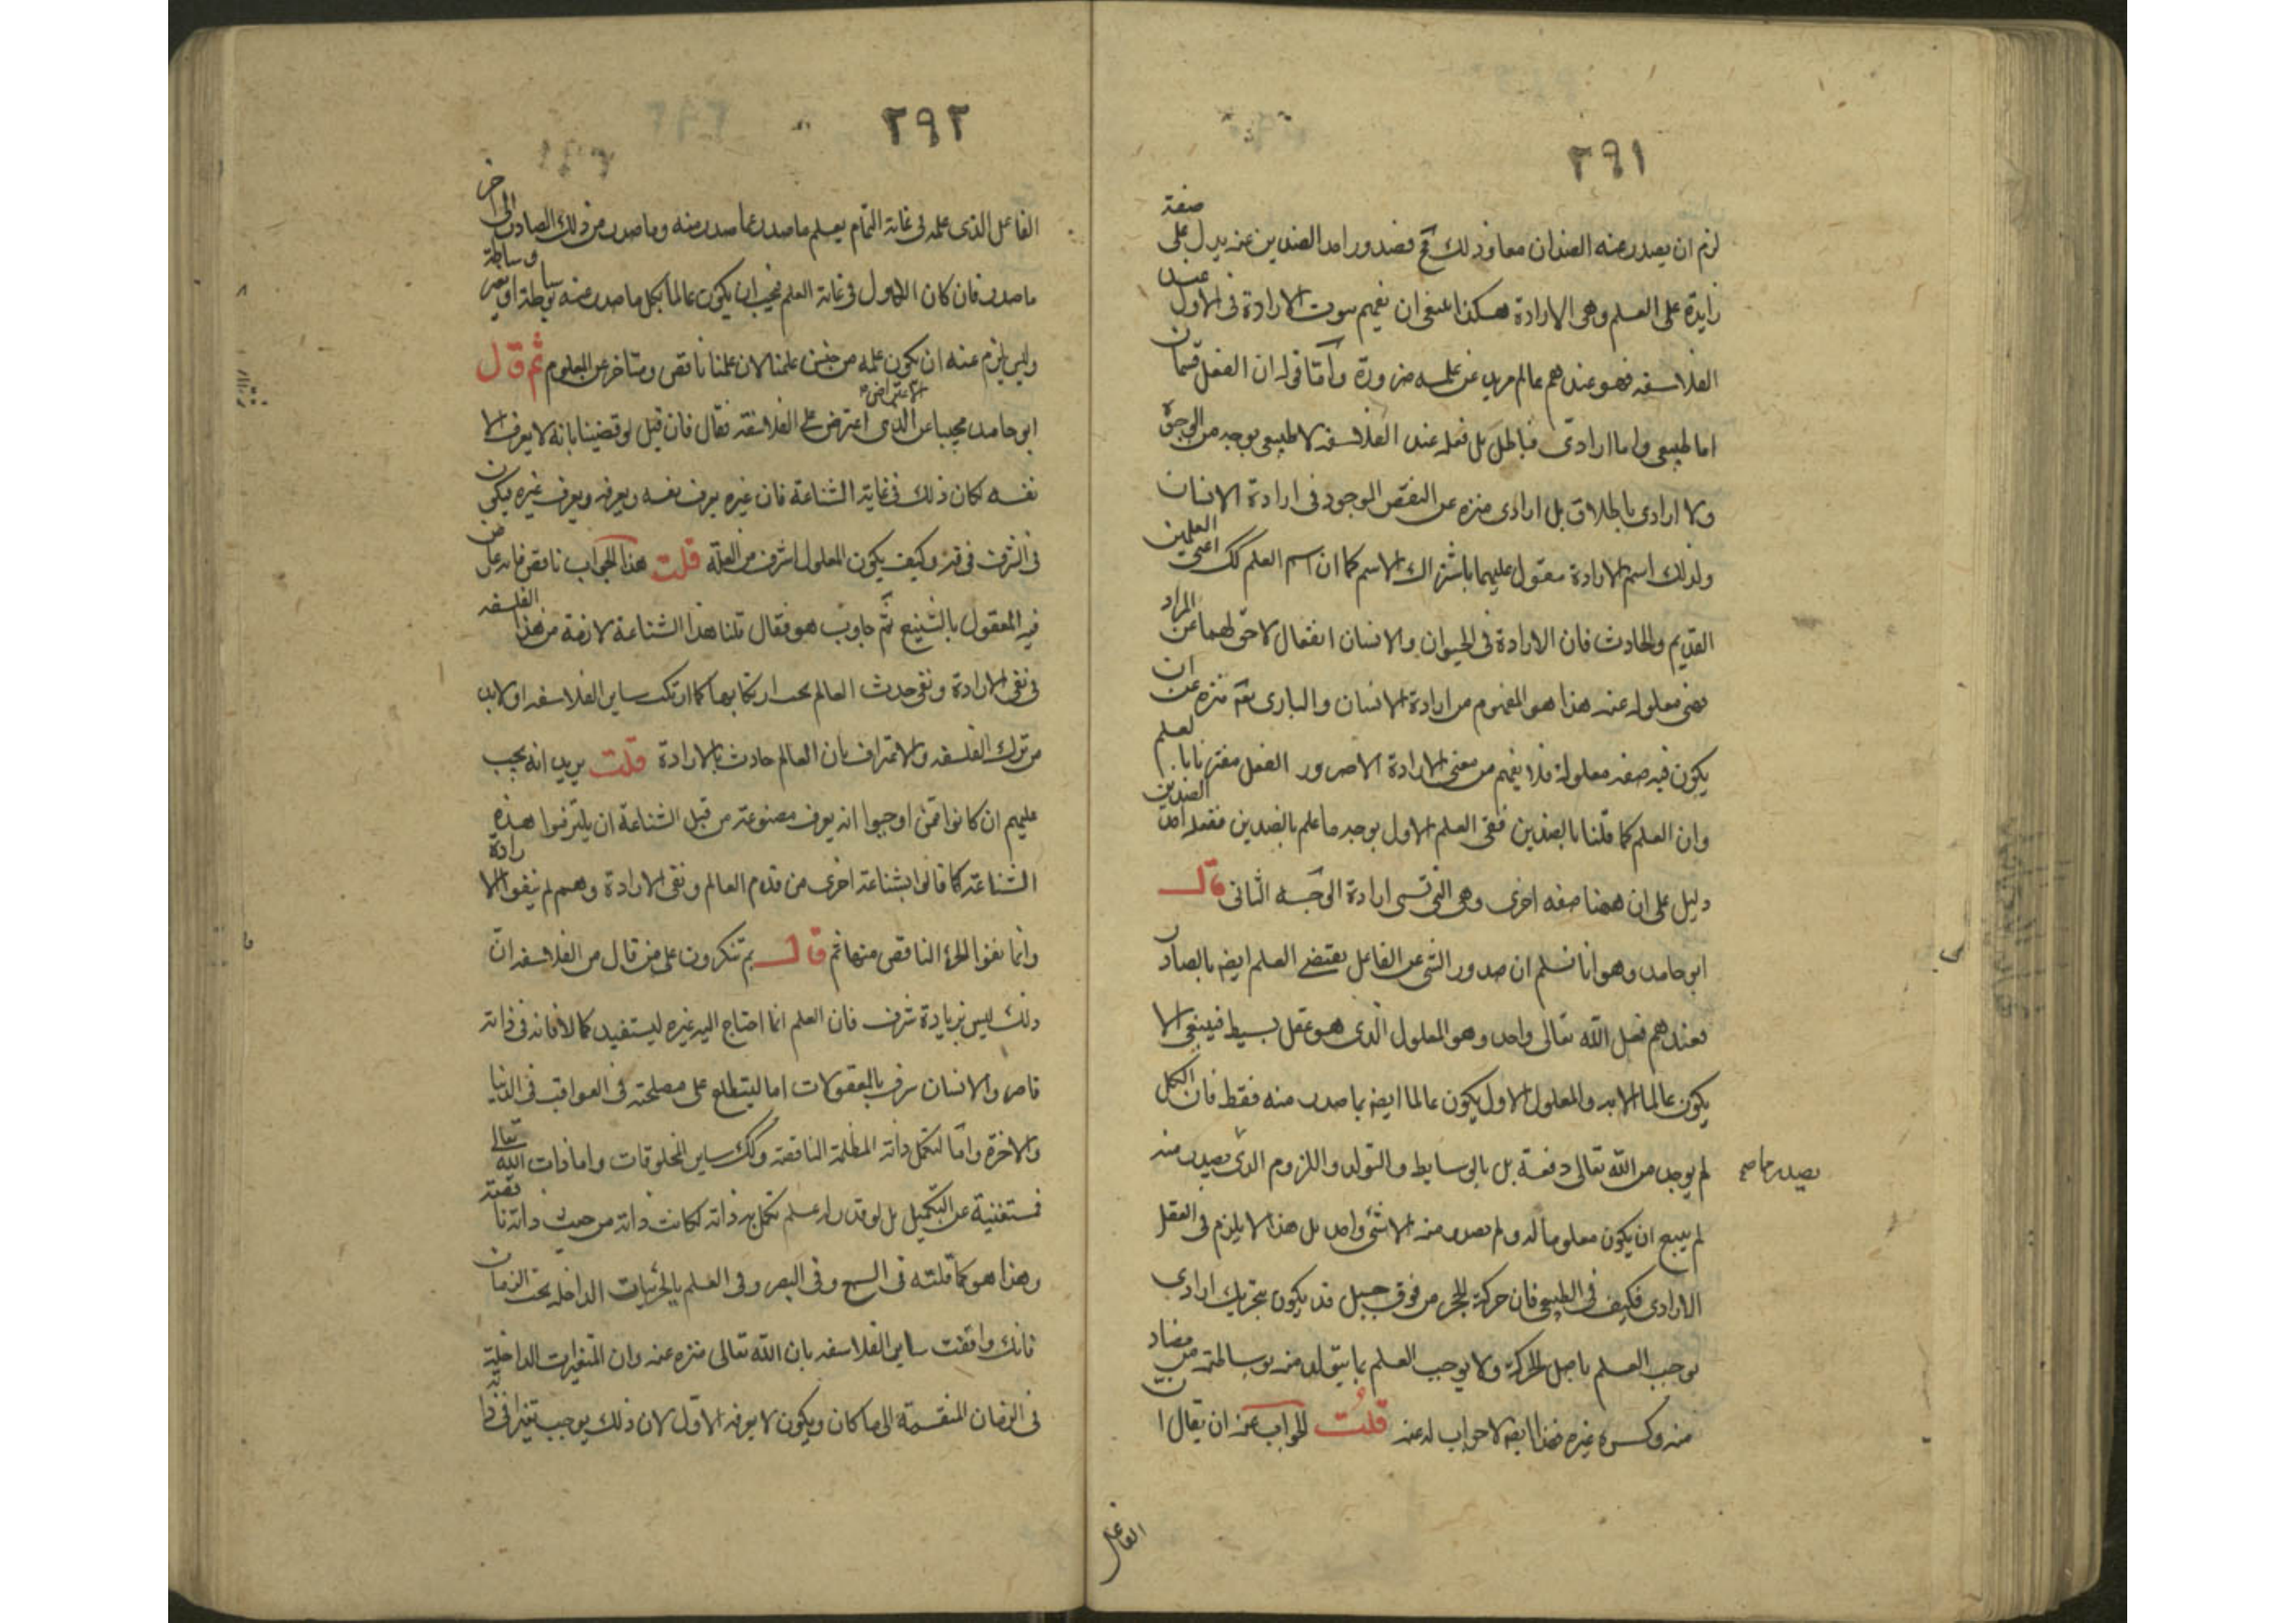 ٢٩١
لزم ان يصدر عنه الضدان معا وذلك مح فصدور احد الضدين عنه يدل على صفة
زايدة على العلم وهى الارادة هكذا ينبغى ان يفهم ثبوت الارادة فى الاول عند
الفلاسفه فهو عندهم عالم مريد عن علمه ضرورة وأمّا قوله ان الفعل قسمان
اما طبيعى واما ارادى فباطل بل فعله عند الفلاسفه لا طبيعى بوجه من الوجوه
ولا ارادى باطلاق بل ارادى منزه عن النقص الموجود فى ارادة الانسان
ولذلك اسم الارادة مقول عليهما باشتراك الاسم كما ان اسم العلم كك اعنى العلمين
القديم والحادث فان الارادة فى الحيوان والانسان انفعال لاحق لهما عن المراد
فهى معلولة عنه هذا هو المفهوم من ارادة الانسان والبارى تعه منزه عن ان
يكون فيه صفه معلولة فلا يفهم من معنى الارادة الا صدور الفعل مقترنا بالعلم
وان العلم كما قلنا بالضدين ففى العلم الاول بوجه ما علم بالضدين ففعله احد الضدين
دليل على ان ههنا صفه اخرى وهى التى تسمى ارادة الوجه الثانى قال
ابو حامد وهو انا نسلم ان صدور الشى عن الفاعل يقتضى العلم ايضه بالصادر
فعندهم فعل الله تعالى واحد وهو المعلول الّذى هو عقل بسيط فينبغى الا
يكون عالما الا به والمعلول الاول يكون عالما ايضه بما صدر منه فقط فان الكل
لم يوجد من الله تعالى دفعة بل بالوسايط والتولد واللزوم الذى يصدر منه
يصدر مما صح
لم ينبغ ان يكون معلوما له ولم يصدر منه الا شئ واحد بل هذا لا يلزم فى العقل
الارادى فكيف فى الطبيعى فان حركة الحجر من فوق جبل قد يكون بتحريك ارادى
يوجب العلم باصل الحركة ولا يوجب العلم بما يتولد منه بوساطته من مصادمته
منه وكسره غيره فهذا ايضه لا جواب له عنه قلت الجواب عنه ان يقال ان
الفاعل
٢٩٢
الفاعل الذى علمه فى غاية التمام يعلم ما صدر عما صدر منه وما صدر من ذلك الصادر الى اخر
ما صدر فان كان الاول فى غاية العلم فيجب ان يكون عالما بكل ما صدر عنه بوساطة او بغير وساطة
وليس يلزم عنه ان يكون علمه من جنس علمنا لان علمنا ناقص ومتاخر عن المعلوم ثم قال
ابو حامد مجيبا عن الاعتراض الذى اعترض على الفلاسفة فقال فان قيل لو قضينا بانه لا يعرف الا
نفسه لكان ذلك فى غاية الشناعة فان غيره يعرف نفسه ويعرفه ويعرف غيره فيكون
فى الشرف فوقه وكيف يكون المعلول اشرف من العلة قلت هذا الجواب ناقص فانه عارض
فيه المعقول بالشنيع ثم جاوب هو فقال قلنا هذا الشناعة لازمة من هذا الفلسفه
فى نفى الارادة ونفى حدث العالم يجب ارتكابها كما ارتكب ساير الفلاسفه او لابد
من ترك الفلسفه والاعتراف بان العالم حادث بالارادة قلت يريد انه يجب
عليهم ان كانوا ممن اوجبوا انه يعرف مصنوعه من قبل الشناعة ان يلتزموا هذه
الشناعة كما قالوا بشناعة اخرى من قدم العالم ونفى الارادة وهم لم ينفوا الارادة
وانما نفوا الجزء الناقص منها ثم قال بم تنكرون على من قال من الفلاسفه ان
ذلك ليس بزيادة شرف فان العلم انما احتاج اليه غيره ليستفيد كمالا فانه فى ذاته
قاصر والانسان شرف بالمعقولات اما ليتطلع على مصلحته فى العواقب فى الدنيا
والاخرة واما لتكمل ذاته المظلمة الناقصة وكك ساير المخلوقات واما ذات الله تعالى
فمستغنية عن التكميل بل لو قدر له علم تكمل به ذاته لكانت ذاته من حيث ذاته ناقصة
وهذا هو كما قلته فى السمع وفى البصر وفى العلم بالجزئيات الداخله تحت الزمان
فانك وافقت ساير الفلاسفه بان الله تعالى منزه عنه وان المتغيرات الداخلة
فى الزمان المنقسمة الى ما كان ويكون لا يعرفه الاول لان ذلك يوجب تغيرا فى ذاته